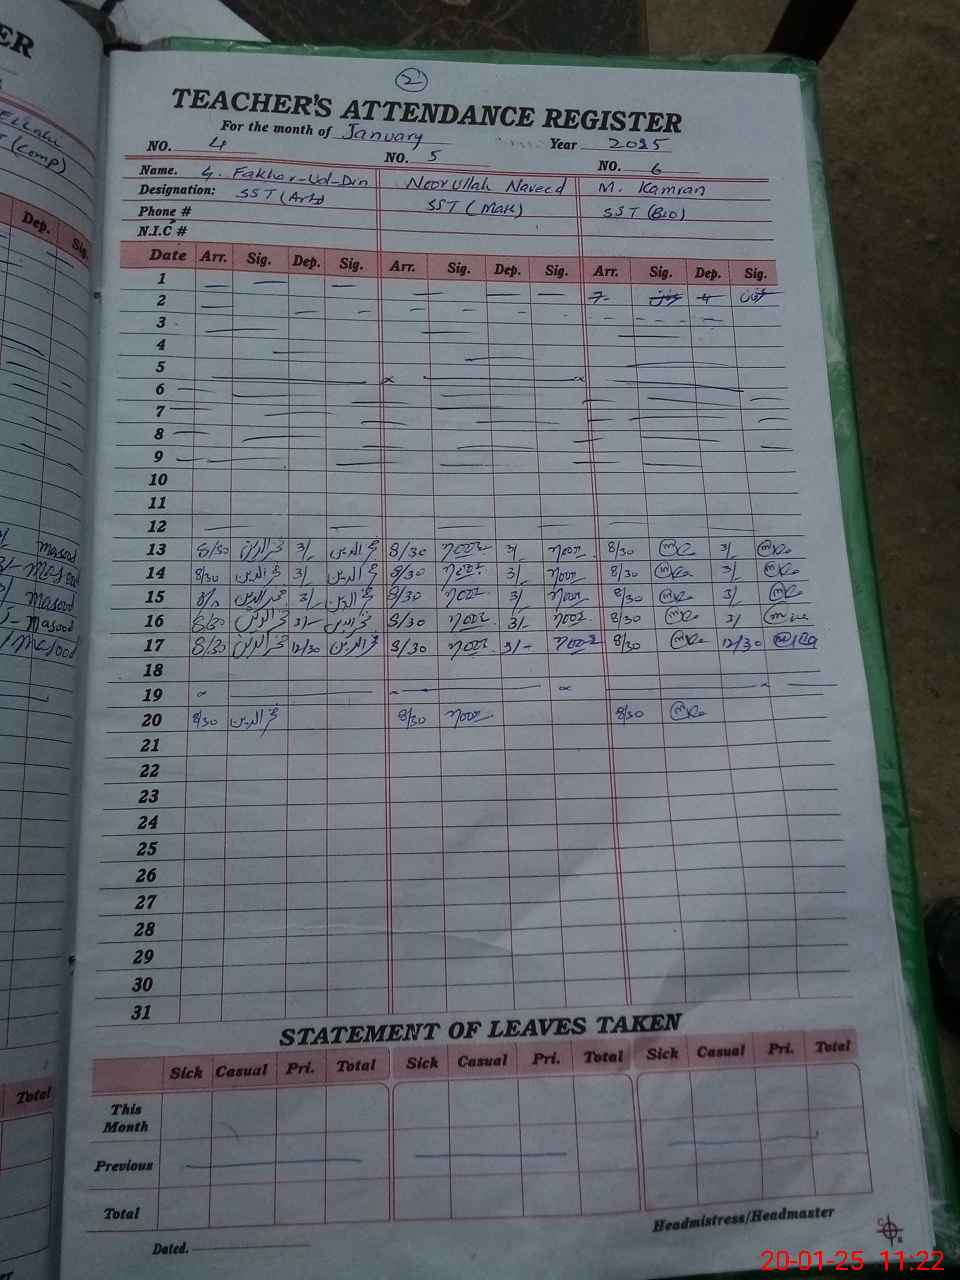 ER
Ellahi
(Comp)
Dep. Sig.
2
TEACHER'S ATTENDANCE REGISTER
For the month of January Year 2025
NO. 4 NO. 5 NO. 6
Name. G. Fakhar-Ud-Din Noorullah Naveed M. Kamran
Designation: SST (Arts) SST (Math) SST (Bio)
Phone #
N.I.C #
Date Arr. Sig. Dep. Sig. Arr. Sig. Dep. Sig. Arr. Sig. Dep. Sig.
1
2
3
4
5
6
7
8
9
10
11
12
13 8/30 فخرالدین 3/ فخرالدین 8/30 noor 3/ noor 8/30 3/
14 8/30 فخرالدین 3/ فخرالدین 8/30 noor 3/ noor 8/30 3/
15 فخرالدین 3/ فخرالدین 8/30 noor 3/ noor 8/30 3/
16 8/30 فخرالدین فخرالدین 8/30 noor 3/- noor 8/30 3/
17 8/30 فخرالدین 12/30 فخرالدین 8/30 noor noor 8/30 12/30
18
19
20 8/30 فخرالدین 8/30 noor 8/30
21
22
23
24
25
26
27
28
29
30
31
masood
masood
masood
Masood
masood
Total
STATEMENT OF LEAVES TAKEN
Sick Casual Pri. Total Sick Casual Pri. Total Sick Casual Pri. Total
This
Month
Previous
Total
Dated. Headmistress/Headmaster
20-01-25 11:22